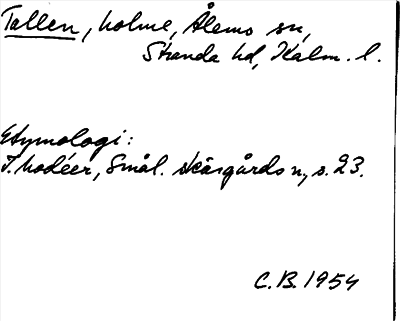 Tallen, holme, Ålems sn,
Stranda hd, Kalm. l.
Etymologi:
I. Modéer, Smål. skärgårdsn, s. 23.
C.B. 1954